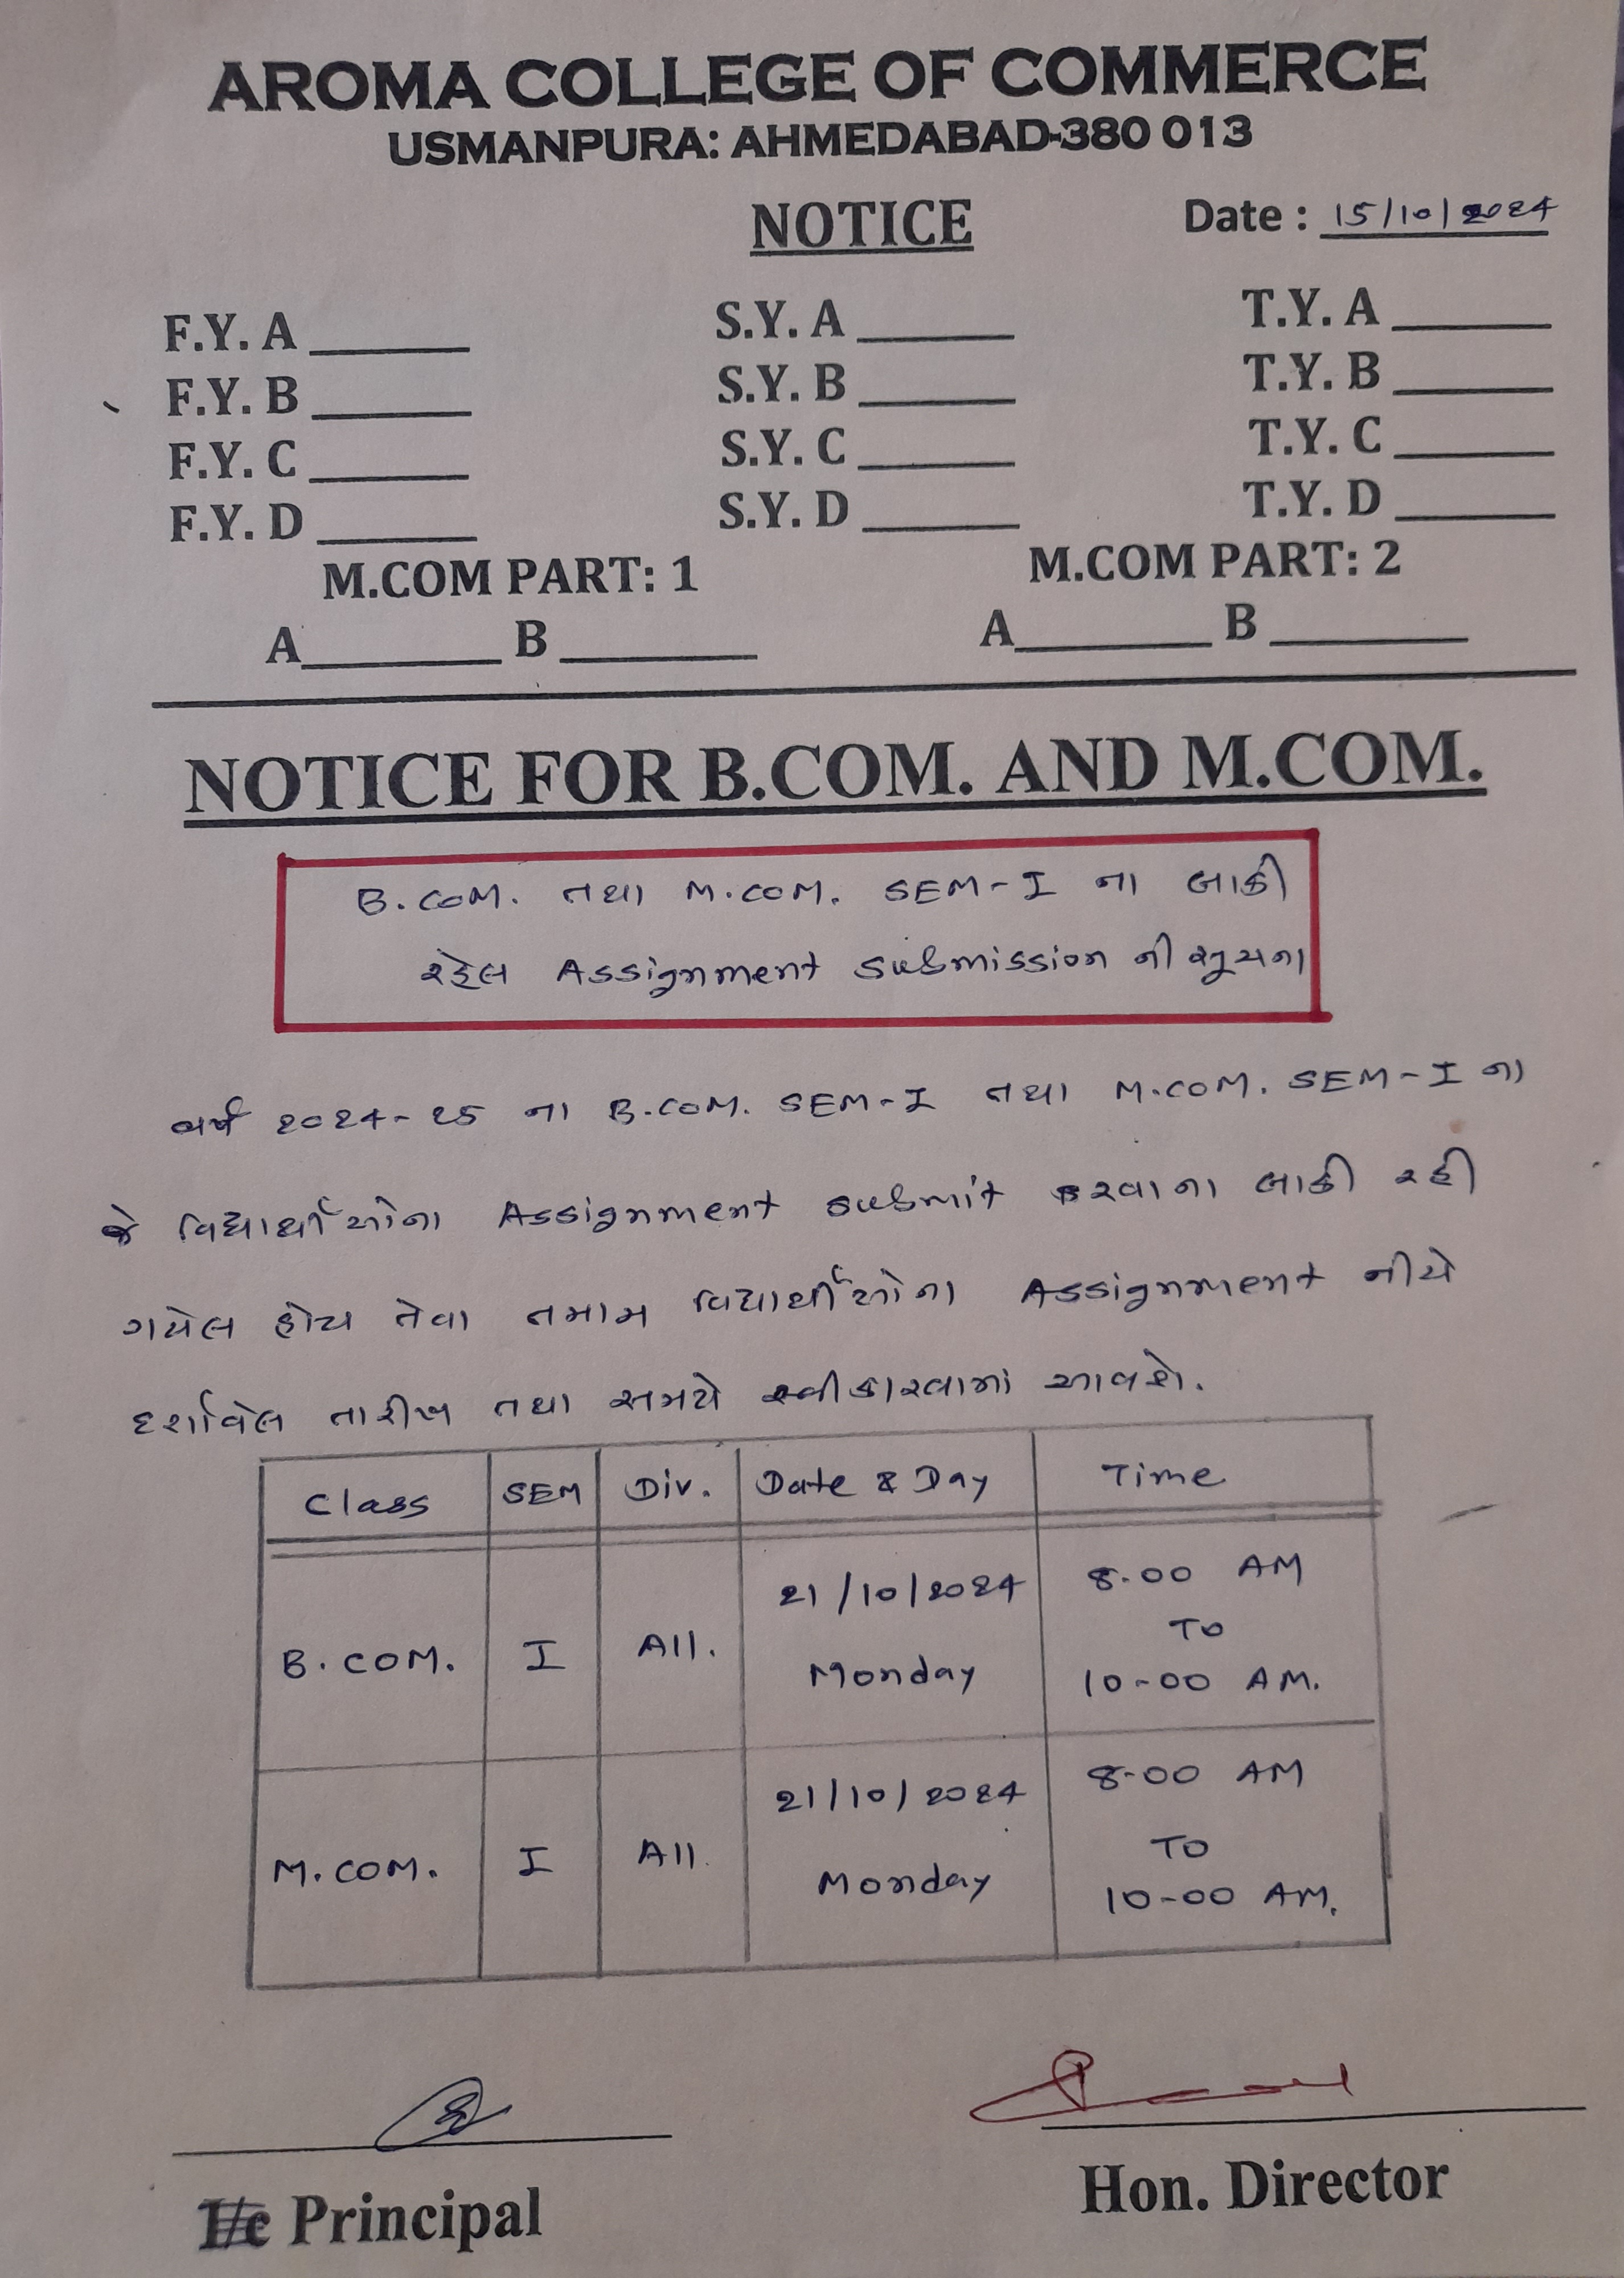 AROMA COLLEGE OF COMMERCE
USMANPURA: AHMEDABAD-380 013
NOTICE Date : 15/10/2024
F.Y. A ______ S.Y. A ______ T.Y. A ______
F.Y. B ______ S.Y. B ______ T.Y. B ______
F.Y. C ______ S.Y. C ______ T.Y. C ______
F.Y. D ______ S.Y. D ______ T.Y. D ______
M.COM PART: 1 M.COM PART: 2
A______ B ______ A______ B ______
NOTICE FOR B.COM. AND M.COM.
B.COM. તથા M.COM. SEM-I ના બાકી
રહેલ Assignment Submission ની સૂચના
વર્ષ 2024-25 ના B.COM. SEM-I તથા M.COM. SEM-I ના
જે વિદ્યાર્થીઓના Assignment submit કરવાના બાકી રહી
ગયેલ હોય તેવા તમામ વિદ્યાર્થીઓના Assignment નીચે
દર્શાવેલ તારીખ તથા સમયે સ્વીકારવામાં આવશે.
Class SEM Div. Date & Day Time
B.COM. I All. 21/10/2024 Monday 8.00 AM TO 10-00 AM.
M.COM. I All. 21/10/2024 Monday 8-00 AM TO 10-00 AM.
Principal Hon. Director